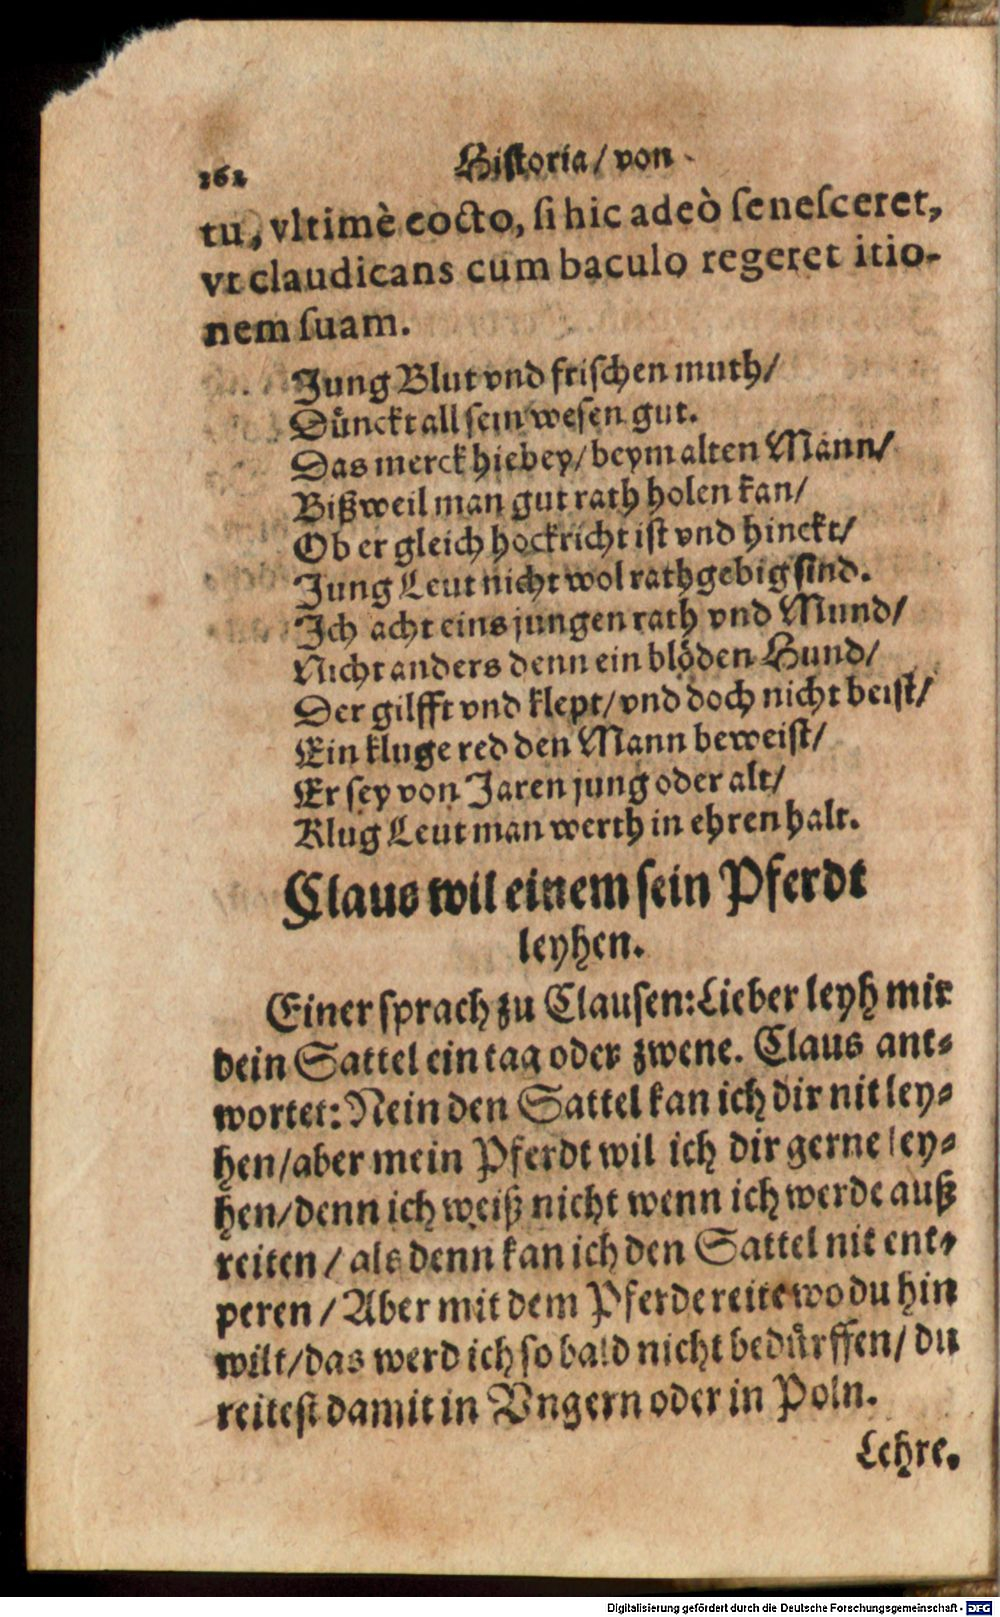 162
Historia/ von
tu, vltimè eocto, si hic adeò senesceret,
vt claudicans cum baculo regeret itio-
nem suam.
Jung Blut vnd frischen muth/
Dünckt all sein wesen gut.
Das merck hiebey/ beym alten Mann/
Bißweil man gut rath holen kan/
Ob er gleich hockricht ist vnd hinckt/
Jung Leut nicht wol rathgebig sind.
Ich acht eins jungen rath vnd Mund/
Nicht anders denn ein blöden Hund/
Der gilfft vnd klept/ vnd doch nicht beist/
Ein kluge red den Mann beweist/
Er sey von Jaren jung oder alt/
Klug Leut man werth in ehren halt.
Claus wil einem sein Pferdt
leyhen.
Einer sprach zu Clausen: Lieber leyh mir
dein Sattel ein tag oder zwene. Claus ant-
wortet: Nein den Sattel kan ich dir nit ley-
hen/ aber mein Pferdt wil ich dir gerne ley-
hen/ denn ich weiß nicht wenn ich werde auß
reiten/ als denn kan ich den Sattel nit ent-
peren/ Aber mit dem Pferde reite wo du hin
wilt/ das werd ich so bald nicht bedürffen/ du
reitest damit in Vngern oder in Poln.
Lehre.
Digitalisierung gefördert durch die Deutsche Forschungsgemeinschaft - DFG